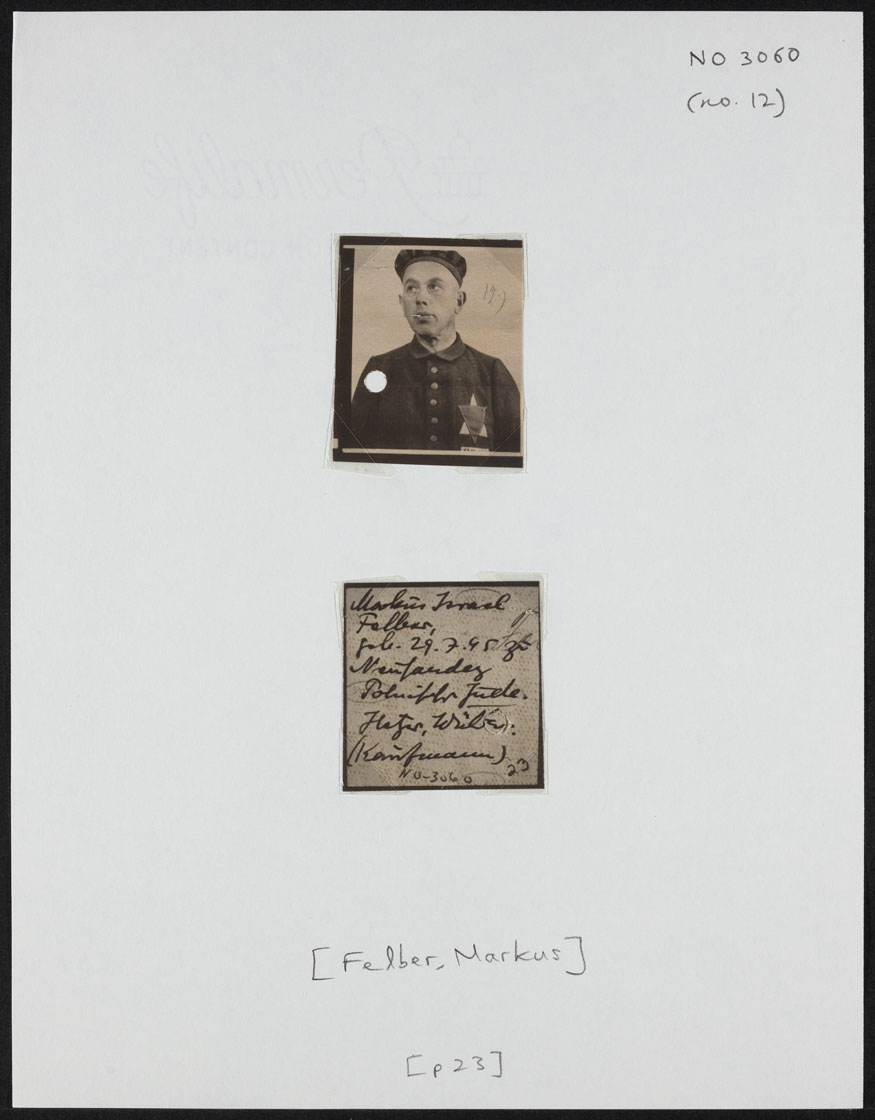 NO 3060
(no. 12)
19.)
Markus Israel
Felber,
geb. 29.7.95 zu
Neusandez
Polnischer Jude.
Hetzer,
(Kaufmann)
23
NO-3060
[Felber, Markus]
[p 23]